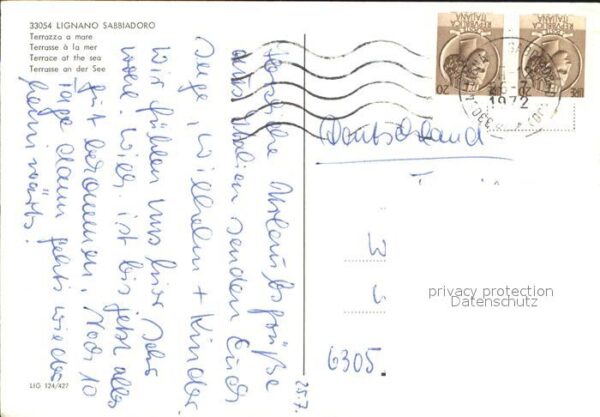 33054 LIGNANO SABBIADORO
Terrazza a mare
Terrasse à la mer
Terrace at the sea
Terrasse an der See
REPVBBLICA
ITALIANA
20
REPVBBLICA
ITALIANA
LIRE 20
1972
Deutschland
Herzliche Urlaubsgrüße
aus Italien senden Euch
Inge, Wilhelm + Kinder.
Wir fühlen uns hier sehr
wohl. Wich. ist bis jetzt alles
gut bekommen. Noch 10
Tage dann gehts wieder
heimwärts.
25.7.
privacy protection
Datenschutz
6305.
LIG 124/427